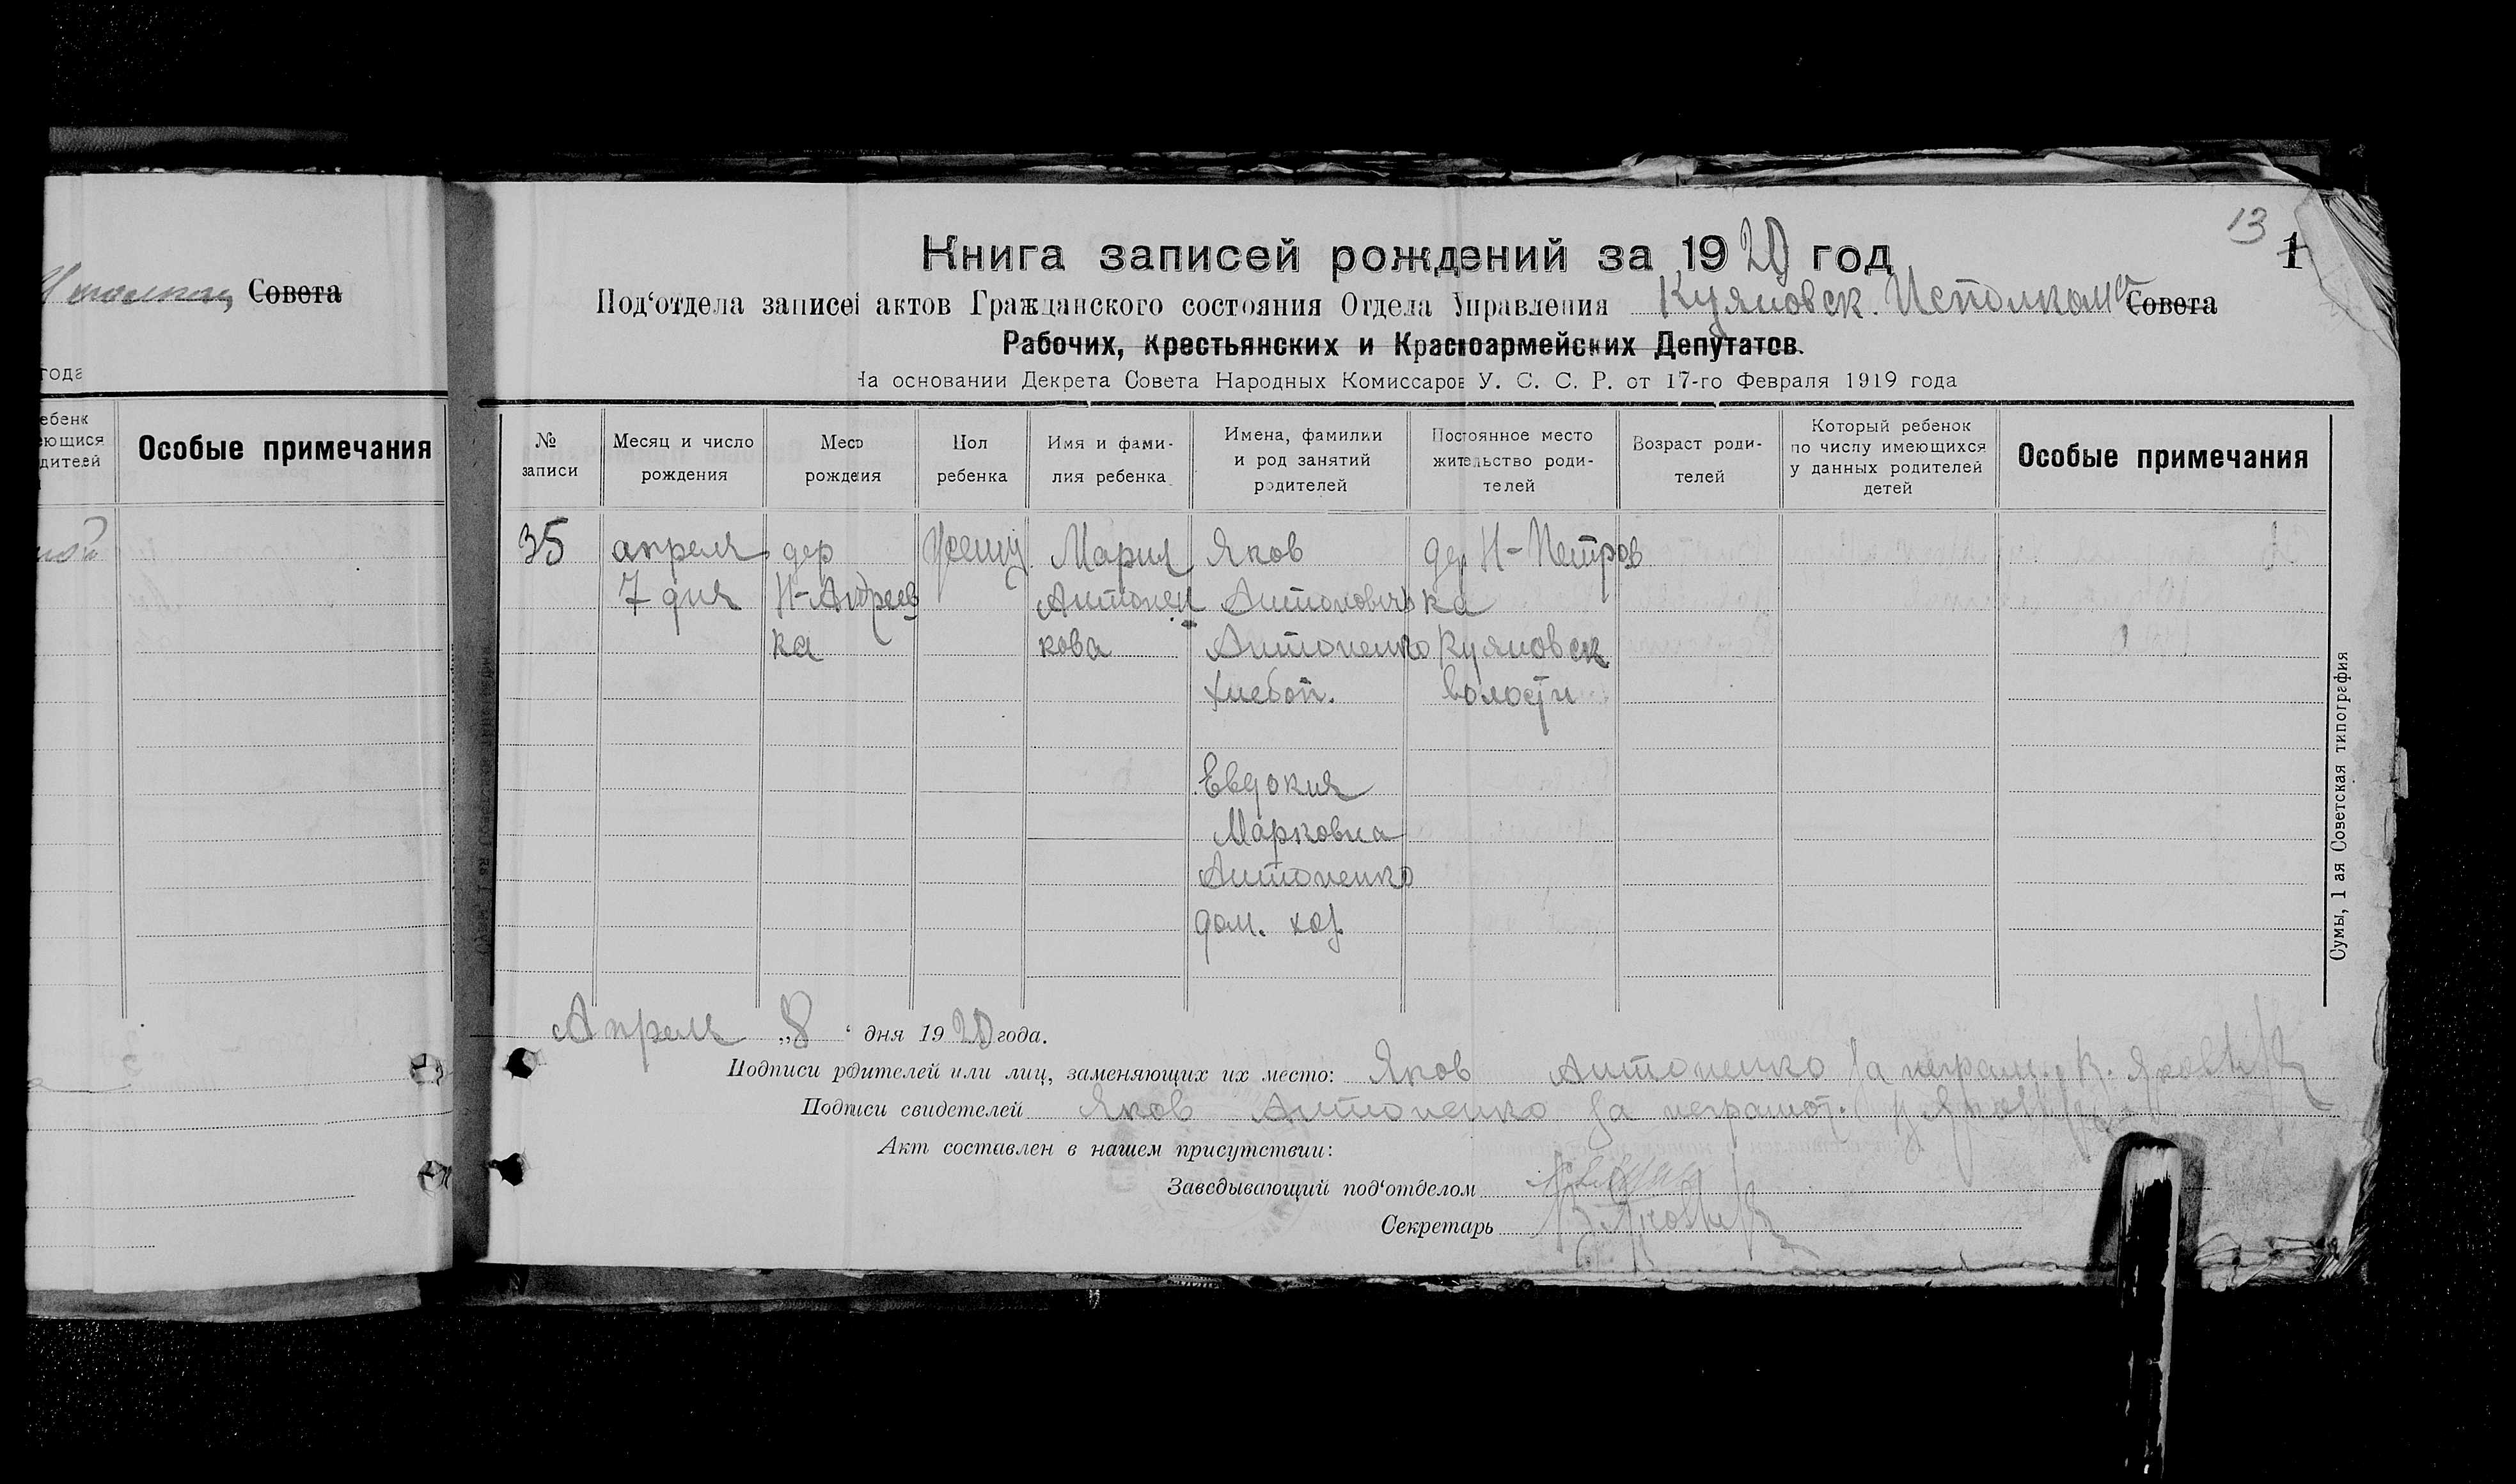 Совета
года
Особые примечания
13
1
Книга записей рождений за 1920 год
Под‘отдела записей актов Гражданского состояния Отдела Управления Куяновск. Исполкома Совета
Рабочих, Крестьянских и Красноармейских Депутатов.
На основании Декрета Совета Народных Комиссаров У. С. С. Р. от 17-го Февраля 1919 года
№ записи
Месяц и число рождения
Место рождения
Пол ребенка
Имя и фамилия ребенка
Имена, фамилии и род занятий родителей
Постоянное место жительство родителей
Возраст родителей
Который ребенок по числу имеющихся у данных родителей детей
Особые примечания
35
апреля
7 дня
дер
Н-Андреев
ка
Женщ
Мария
Антонен
кова
Яков
Антонович
Антоненко
хлебоп.
Евдокия
Марковна
Антоненко
дом. хоз.
дер Н-Петров
ка
Куяновск
волости
Апреля „8‘ дня 1920 года.
Подписи родителей или лиц, заменяющих их место: Яков Антоненко за неграм.
Подписи свидетелей Яков Антоненко за неграмот.
Акт составлен в нашем присутствии:
Заведывающий под‘отделом
Секретарь
Сумы, 1 ая Советская типография